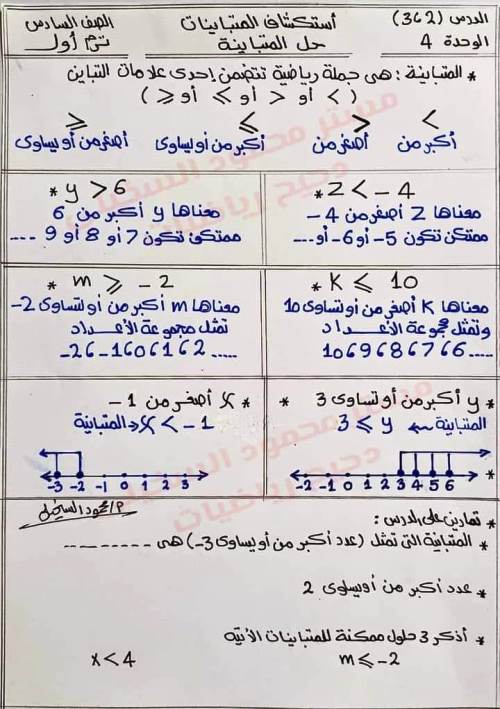 الدرس (2،3)
الوحدة 4
أستكشاف المتباينات
حل المتباينة
الصف السادس
ترم أول
* المتباينة : هى جملة رياضية تتضمن إحدى علامات التباين
( < أو > أو ⩽ أو ⩾ )
< أكبر من
> أصغر من
⩽ أكبر من أو يساوى
⩾ أصغر من أو يساوى
* Z < - 4
معناها Z أصغر من 4 -
ممكن تكون 5- أو 6- أو ....
* y > 6
معناها y أكبر من 6
ممكن تكون 7 أو 8 أو 9 ....
* K ⩽ 10
معناها K أصغر من أو تساوى 10
وتمثل مجموعة الأعداد
10 ، 9 ، 8 ، 7 ، 6 .....
* m ⩾ - 2
معناها m أكبر من أو تساوى 2-
تمثل مجموعة الأعداد
-2 ، -1 ، 0 ، 1 ، 2 .....
* y أكبر من أو تساوى 3 *
المتباينة ← 3 ⩽ y
-2 -1 0 1 2 3 4 5 6
* X أصغر من 1 -
المتباينة X < - 1
-3 -2 -1 0 1 2 3
* تمارين على الدرس :
* المتباينة التى تمثل (عدد أكبر من أو يساوى 3-) هى ---------
عدد أكبر من أو يساوى 2
* أذكر 3 حلول ممكنة للمتباينات الآتية
m ⩽ -2
x < 4
مستر محمود السخيلى
دحيح رياضيات